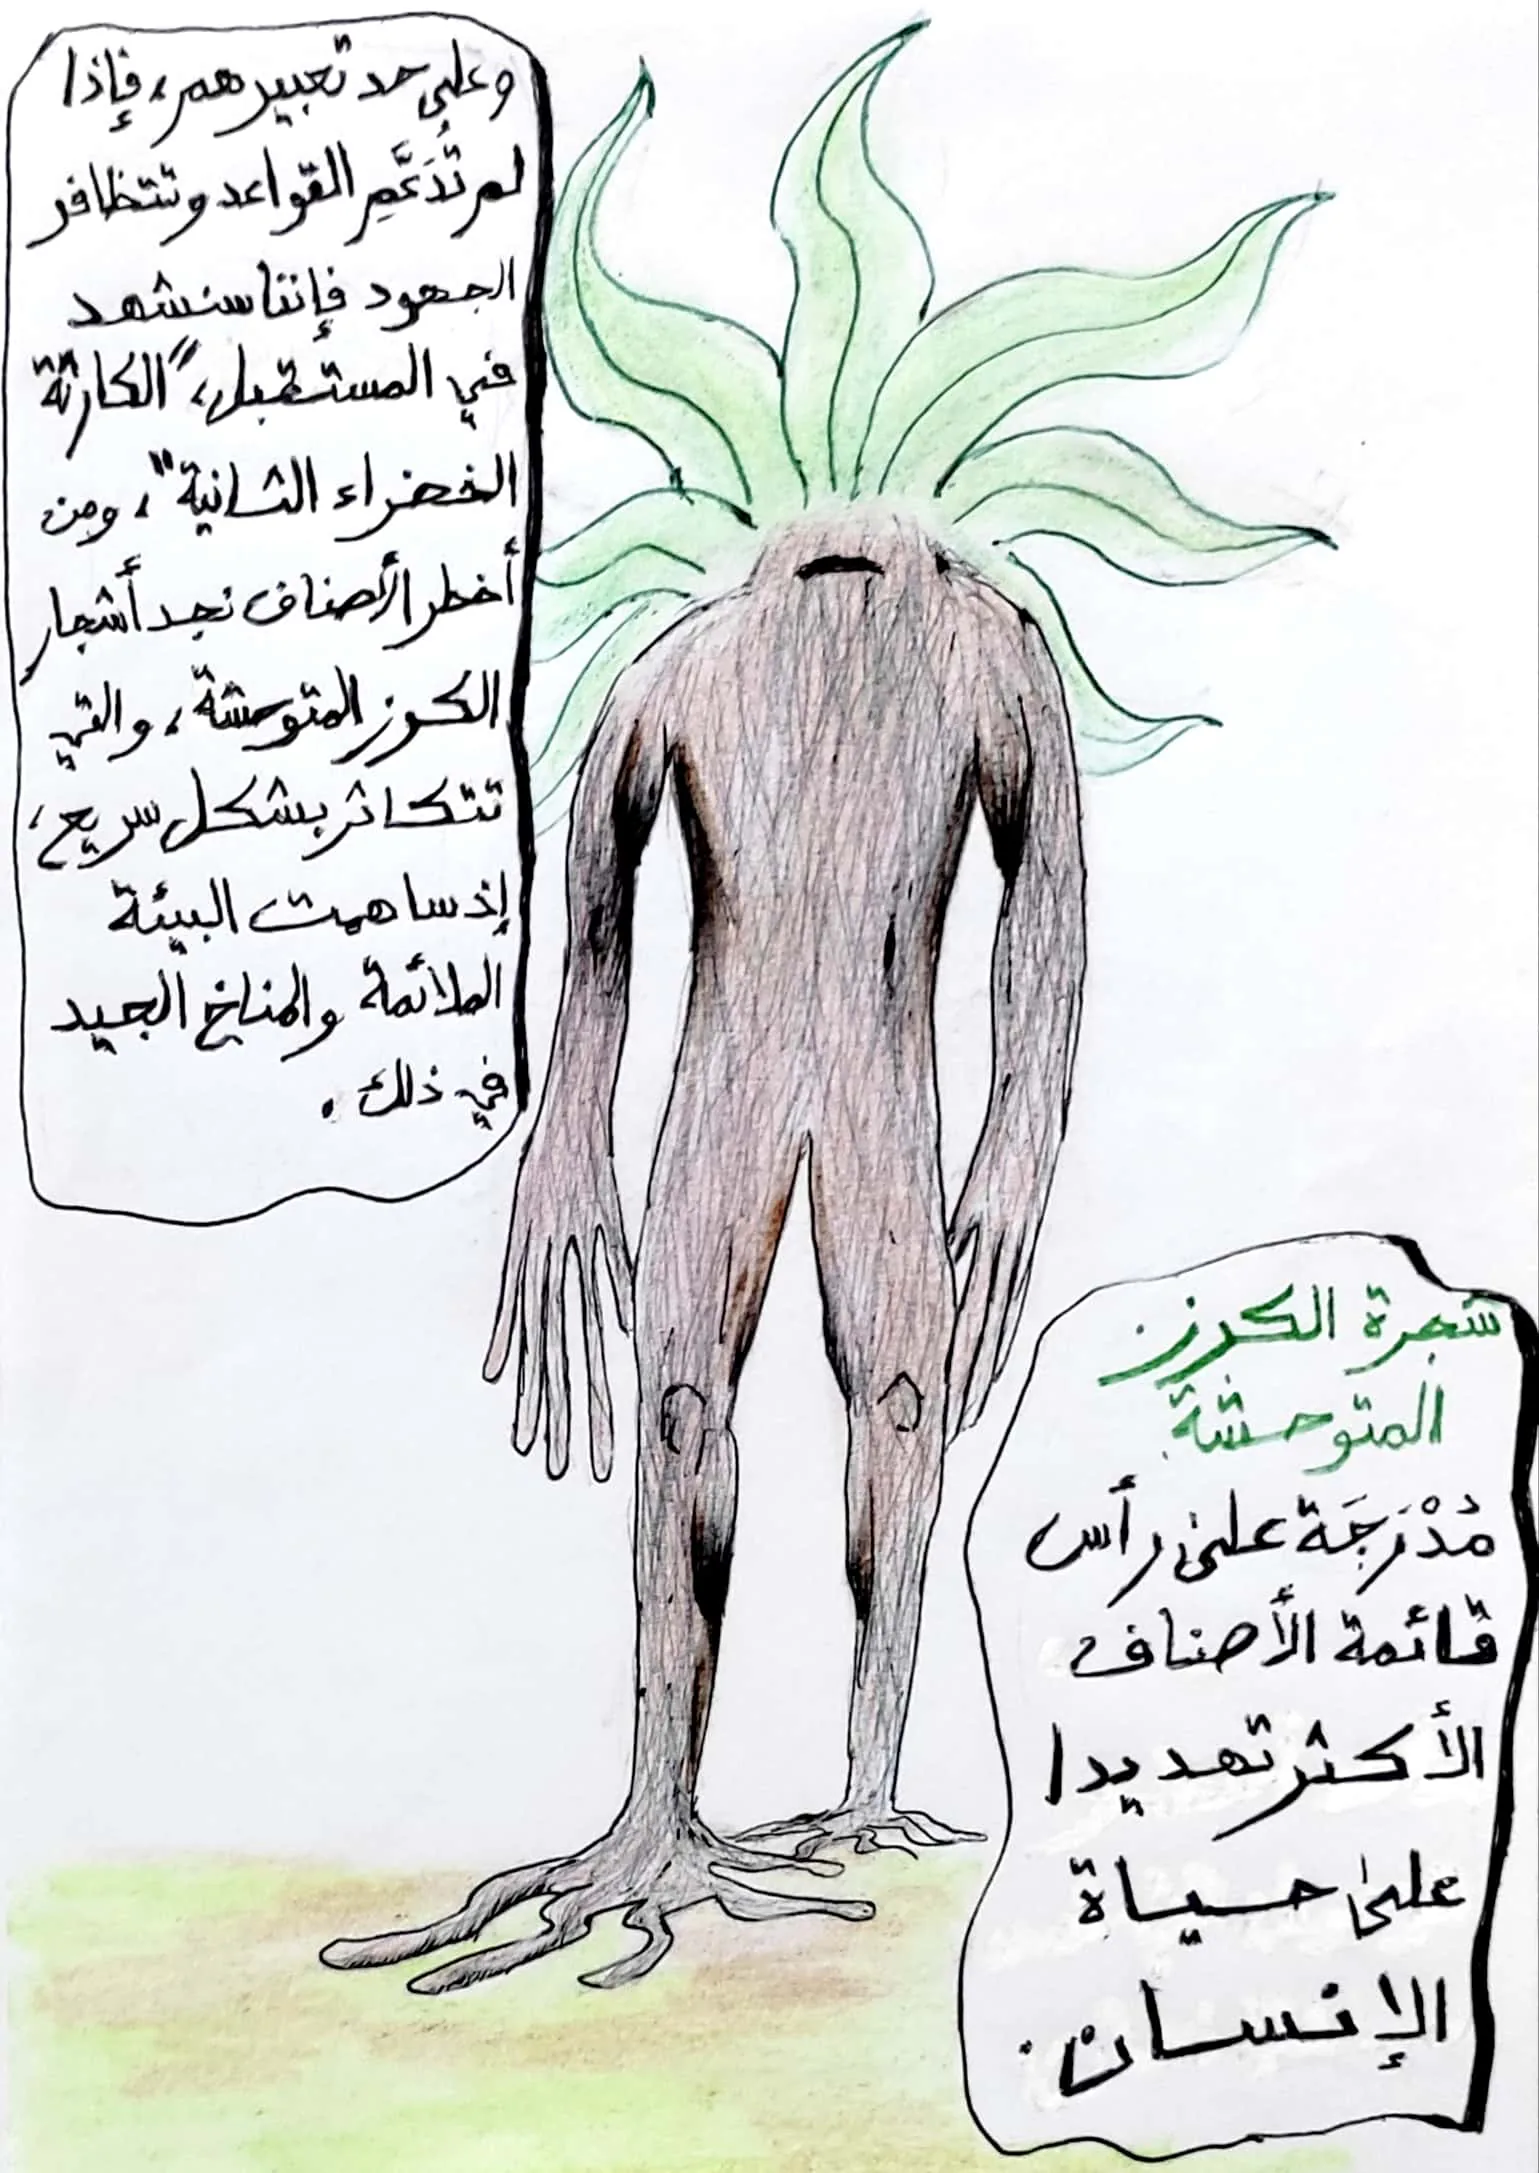 وعلى حد تعبيرهم، فإذا
لم تُدَعَّمِ القواعد وتتظافر
الجهود فإننا سنشهد
في المستقبل، "الكارثة
الخضراء الثانية"، ومن
أخطر الأصناف نجد أشجار
الكرز المتوحشة، والتي
تتكاثر بشكل سريع،
إذ ساهمت البيئة
الملائمة والمناخ الجيد
في ذلك.
شجرة الكرز
المتوحشة
مُدْرَجَة على رأس
قائمة الأصناف
الأكثر تهديدا
على حياة
الإنسان.